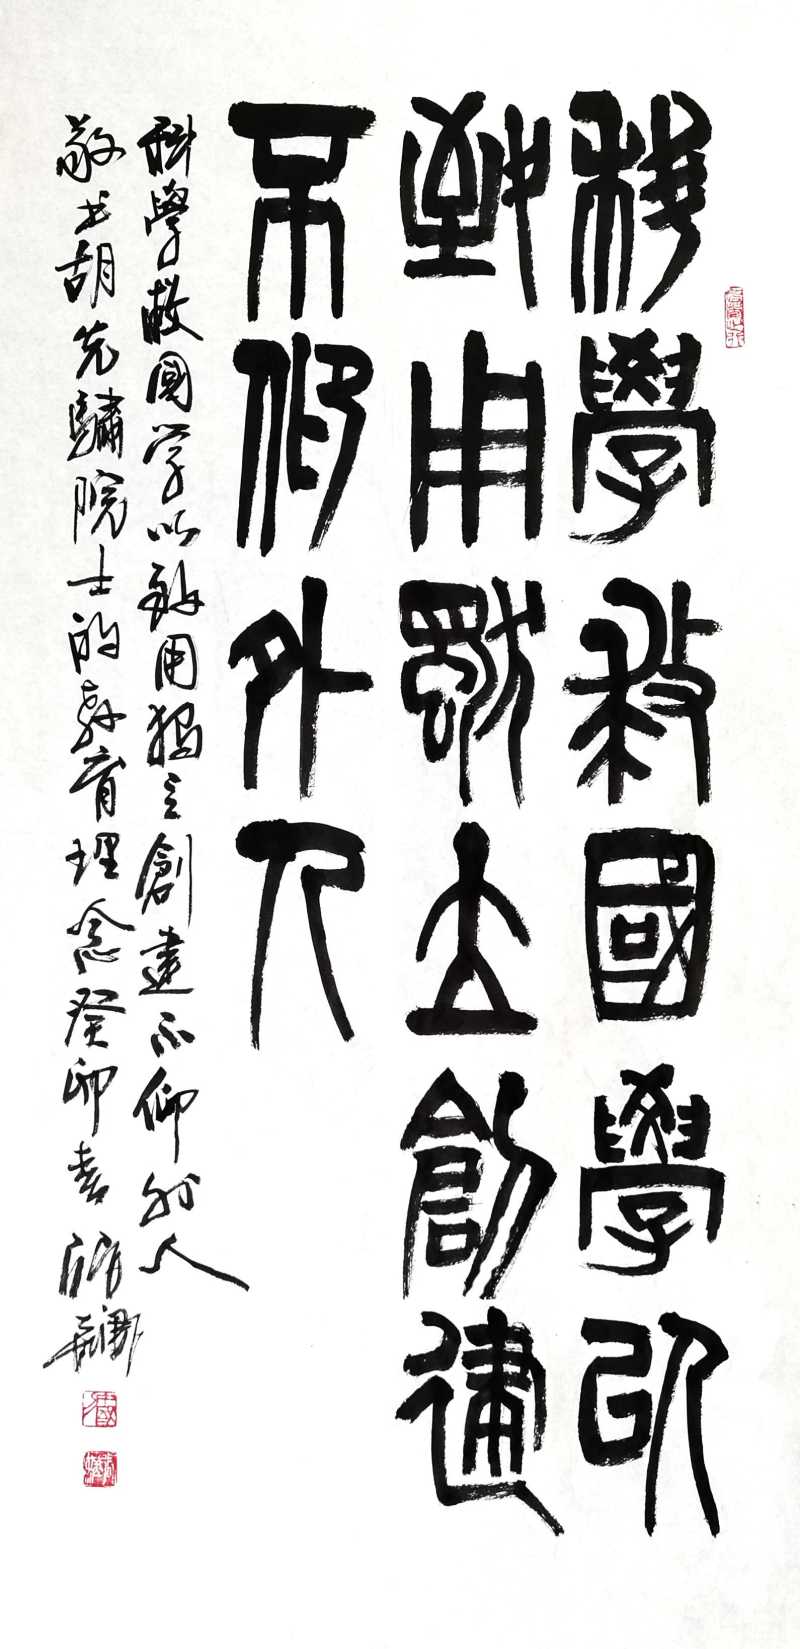 科學救國學以
致用獨立創建
不仰外人
科學救國学以致用獨立創建不仰外人
敬书胡先驌院士的教育理念癸卯春